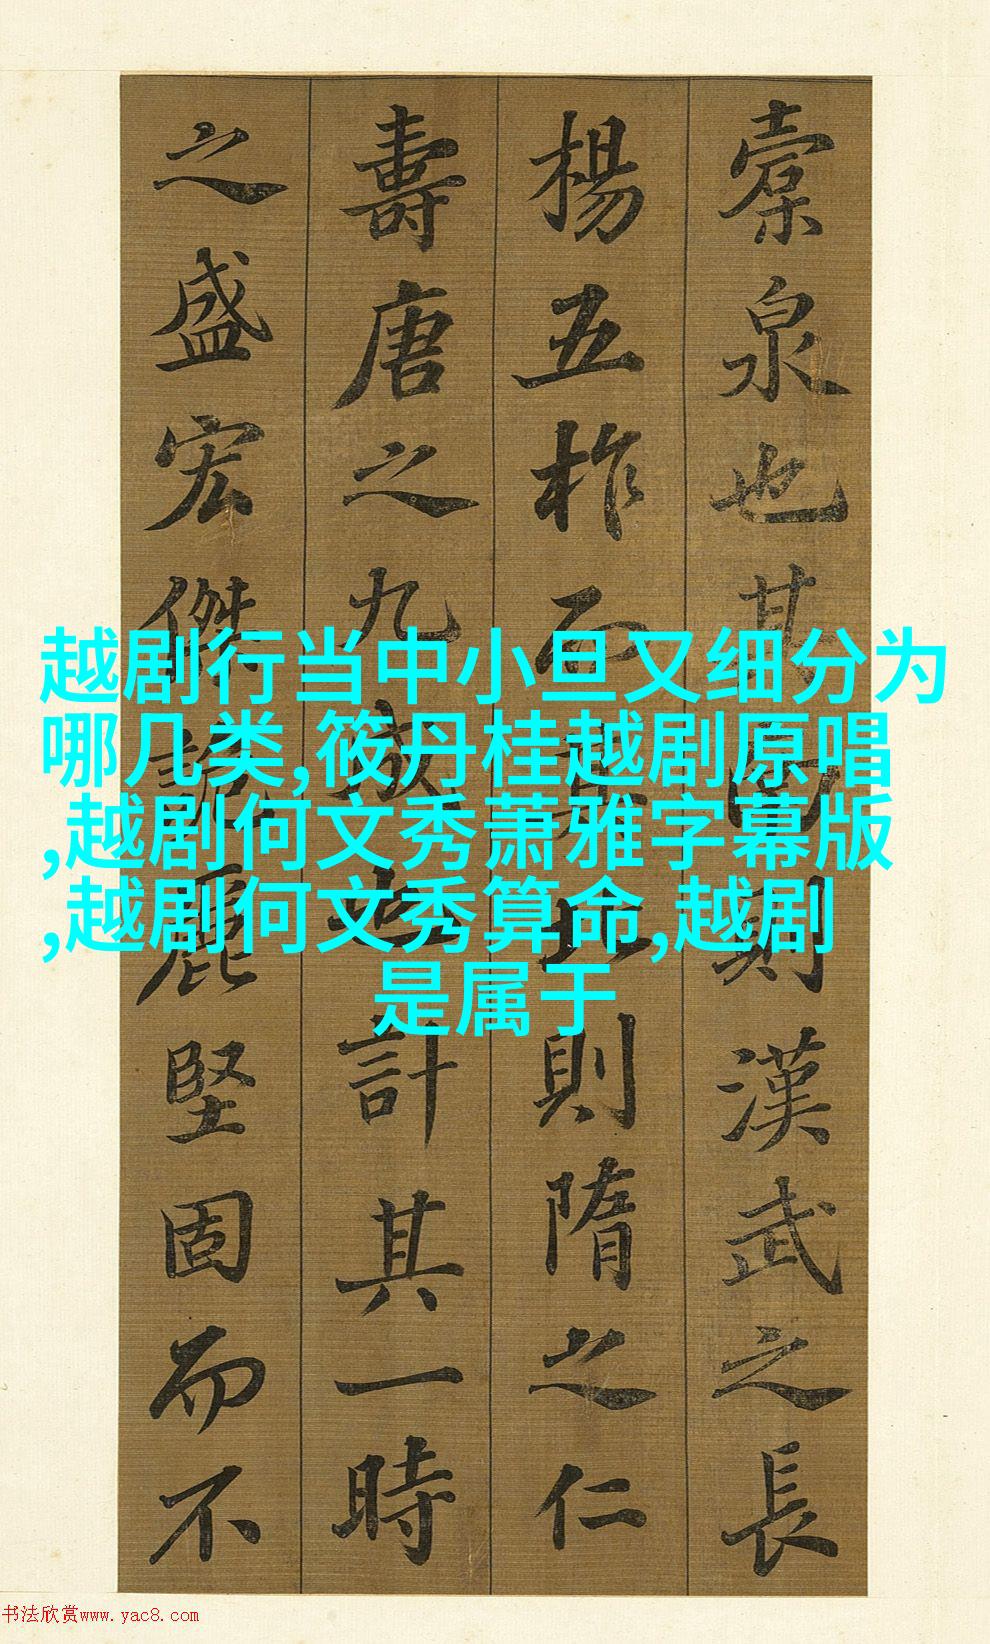 槖泉也其南則漢武之長
楊五柞而其北則隋之仁
壽唐之九成也計其一時
之盛宏傑詭麗堅固而不
越剧行当中小旦又细分为
哪几类,筱丹桂越剧原唱
,越剧何文秀萧雅字幕版
,越剧何文秀算命,越剧
是属于
书法欣赏www.yac8.com